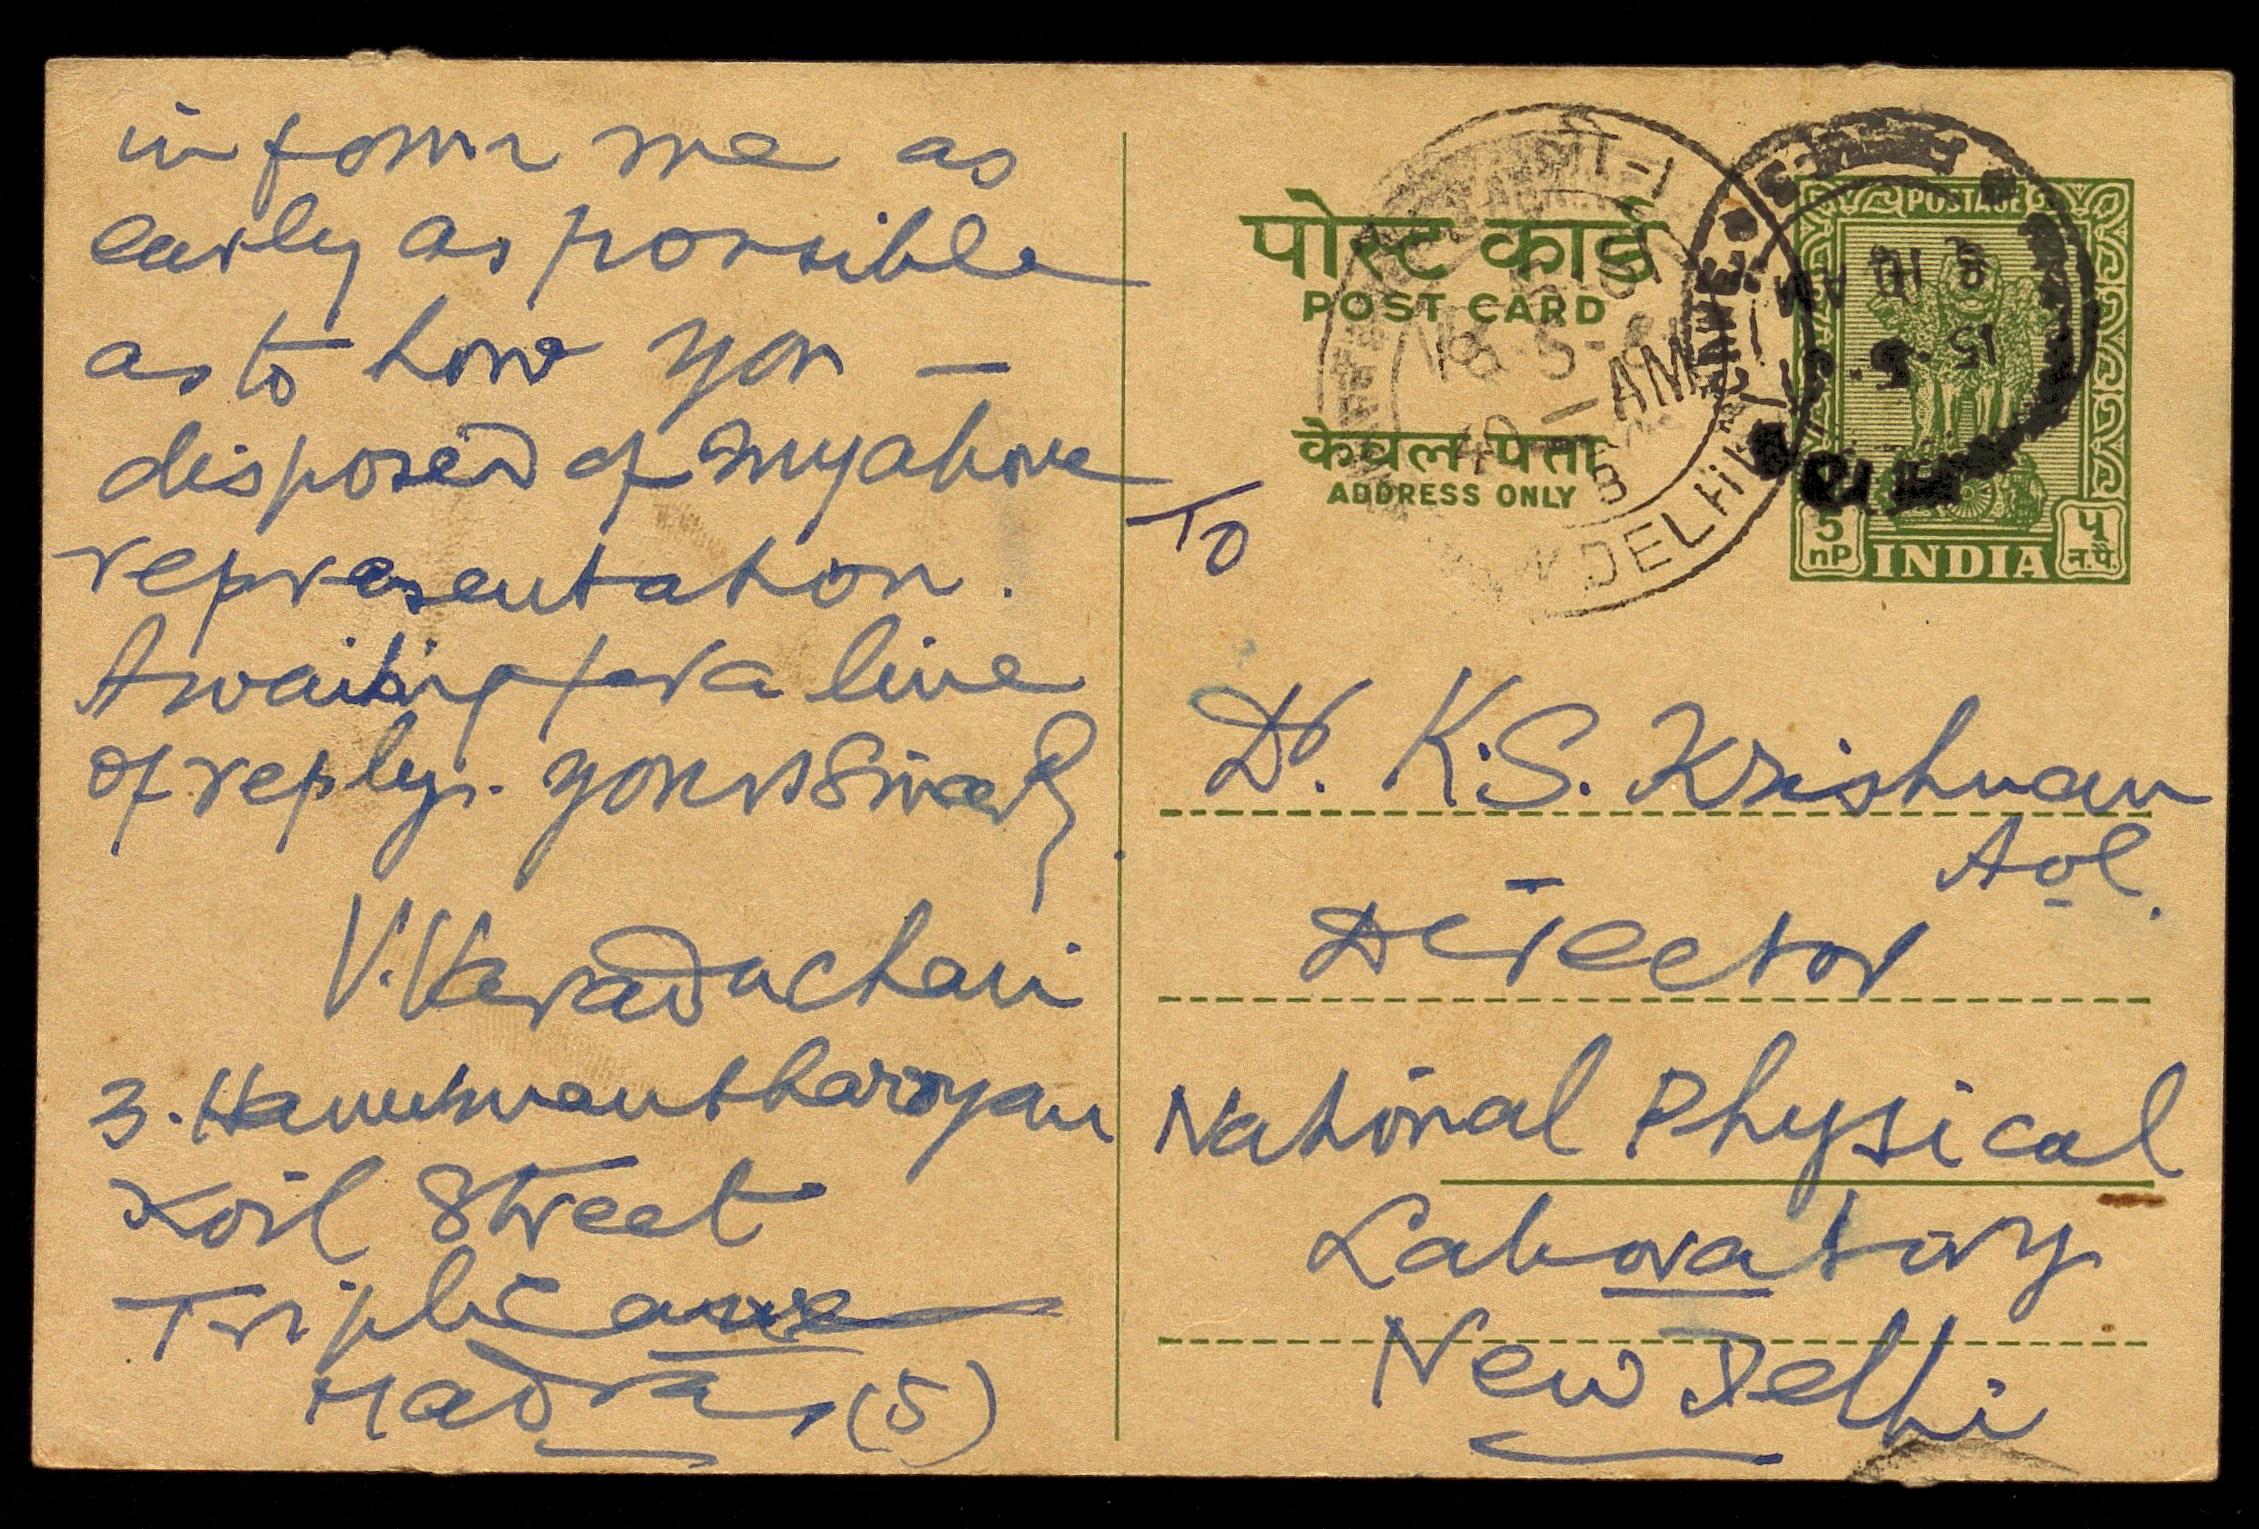 inform me as
early as possible
as to how you —
disposed of my above
representation.
Awaiting for a line
of reply. yours Sincerely
V. Varadachari
3. Hanumantharayan
Koil Street
Triplicane
Madras (5)
पोस्ट कार्ड
POST CARD
केवल पता
ADDRESS ONLY
POSTAGE
5 nP INDIA ५ न.पै.
NEW DELHI
18-5-61
AM
15.5.61
10 AM
To
Dr. K.S. Krishnan
Director
National Physical
Laboratory
New Delhi